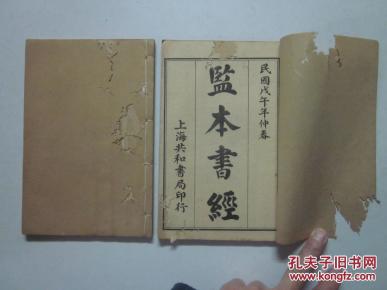 民國戊午年仲春
監本書經
上海共和書局印行
孔夫子旧书网